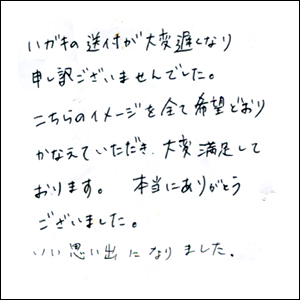 ハガキの送付が大変遅くなり
申し訳ございませんでした。
こちらのイメージを全て希望どおり
かなえていただき、大変満足して
おります。 本当にありがとう
ございました。
いい思い出になりました。